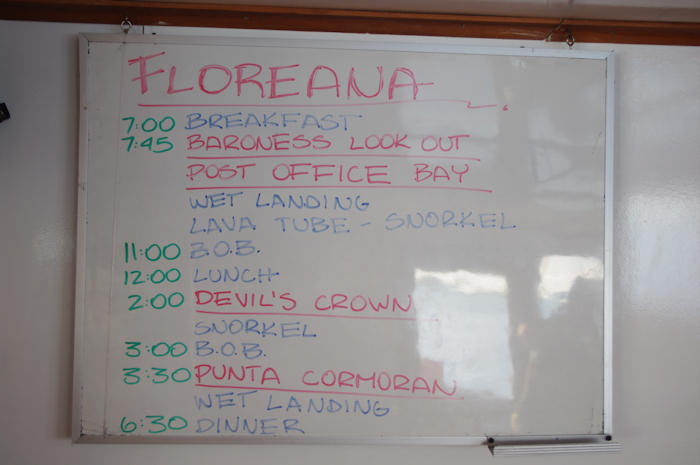 FLOREANA
7:00 BREAKFAST
7:45 BARONESS LOOK OUT
POST OFFICE BAY
WET LANDING
LAVA TUBE - SNORKEL
11:00 B.O.B.
12:00 LUNCH
2:00 DEVIL'S CROWN
SNORKEL
3:00 B.O.B.
3:30 PUNTA CORMORAN
WET LANDING
6:30 DINNER